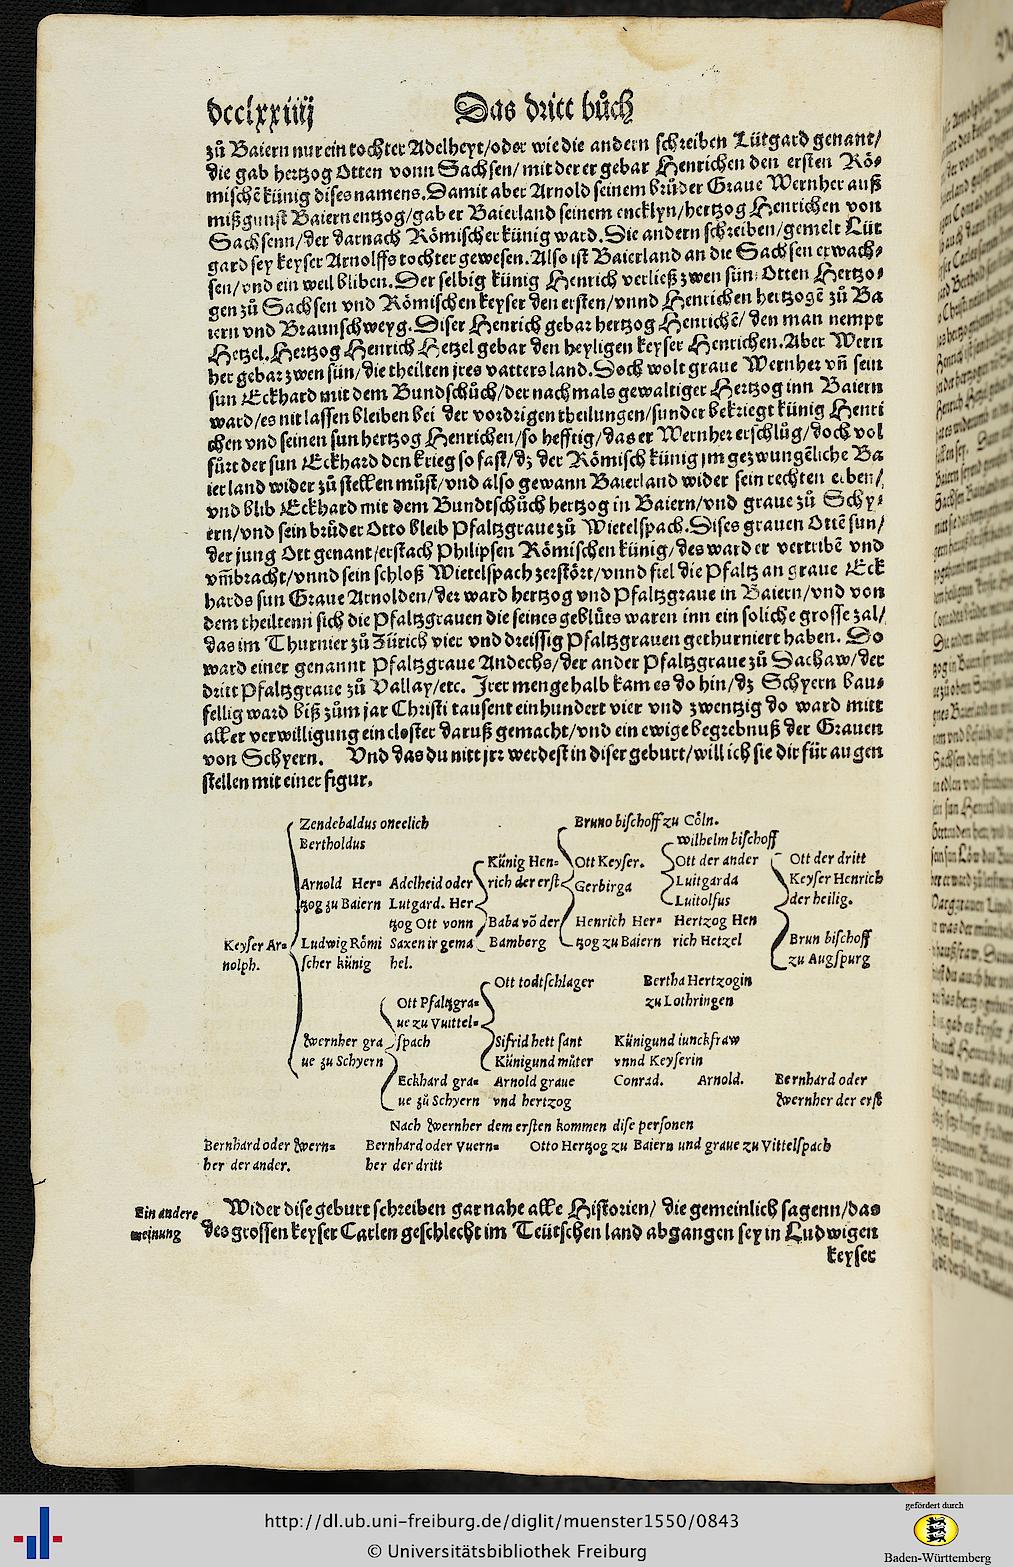 dcclxxiiij
Das dritt bůch
zů Baiern nur ein tochter Adelheyt/oder wie die andern schreiben Lůtgard genant/
die gab hertzog Otten vonn Sachsen/mit der er gebar Henrichen den ersten Rö⸗
mischē künig dises namens. Damit aber Arnold seinem brůder Graue Wernher auß
mißgunst Baiern entzog/gab er Baierland seinem encklyn/hertzog Henrichen von
Sachsenn/der darnach Römischer künig ward. Die andern schreiben/gemelt Lüt
gard sey keyser Arnolffs tochter gewesen. Also ist Baierland an die Sachsen erwach⸗
sen/vnd ein weil bliben. Der selbig künig Henrich verließ zwen sün: Otten Hertzo⸗
gen zů Sachsen vnd Römischen keyser den ersten/vnnd Henrichen hertzogē zů Ba
iern vnd Braunschweyg. Diser Henrich gebar hertzog Henrichē/ den man nempt
Hetzel. Hertzog Henrich Hetzel gebar den heyligen keyser Henrichen. Aber Wern
her gebar zwen sün/die theilten jres vatters land. Doch wolt graue Wernher vñ sein
sun Eckhard mit dem Bundschůch/der nachmals gewaltiger Hertzog inn Baiern
ward/es nit lassen bleiben bei der vordrigen theilungen/sunder bekriegt künig Henri
chen vnd seinen sun hertzog Henrichen/so hefftig/das er Wernher erschlůg/doch vol
fůrt der sun Eckhard den krieg so fast/dz der Römisch künig jm gezwungēliche Ba
ierland wider zů stellen můst/vnd also gewann Baierland wider sein rechten erben/
vnd blib Eckhard mit dem Bundtschůch hertzog in Baiern/vnd graue zů Schy⸗
ern/vnd sein brůder Otto bleib Pfaltzgraue zů Wietelspach. Dises grauen Ottē sun/
der jung Ott genant/erstach Philipsen Römischen künig/des ward er vertribē vnd
vm̃bracht/vnnd sein schloß Wietelspach zerstört/vnnd fiel die Pfaltz an graue Eck
hards sun Graue Arnolden/der ward hertzog vnd Pfaltzgraue in Baiern/vnd von
dem theiltenn sich die Pfaltzgrauen die seines geblůts waren inn ein soliche grosse zal/
das im Thurnier zů Zürich vier vnd dreissig Pfaltzgrauen gethurniert haben. Do
ward einer genannt Pfaltzgraue Andechs/der ander Pfaltzgraue zů Dachaw/der
dritt Pfaltzgraue zů Vallay/etc. Irer menge halb kam es do hin/dz Schyern bau⸗
fellig ward biß zům jar Christi tausent einhundert vier vnd zwentzig do ward mitt
aller verwilligung ein closter daruß gemacht/vnd ein ewige begrebnuß der Grauen
von Schyern. Vnd das du nitt jrr werdest in diser geburt/will ich sie dir für augen
stellen mit einer figur.
Zendebaldus oneelich
Bertholdus
Bruno bischoff zu Cöln.
Wilhelm bischoff
Künig Hen⸗ Ott Keyser. Ott der ander Ott der dritt
Arnold Her⸗ Adelheid oder rich der erst Gerbirga Luitgarda Keyser Henrich
tzog zu Baiern Lutgard. Her Luitolfus der heilig.
tzog Ott vonn Baba vō der Henrich Her⸗ Hertzog Hen
Keyser Ar⸗ Ludwig Römi Saxen ir gema Bamberg tzog zu Baiern rich Hetzel Brun bischoff
nolph. scher künig hel. zu Augspurg
Ott todtschlager Bertha Hertzogin
Ott Pfaltzgra⸗ zu Lothringen
ue zu Vuittel⸗
Wernher gra spach Sifrid hett sant Künigund iunckfraw
ue zu Schyern Künigund můter vnnd Keyserin
Eckhard gra⸗ Arnold graue Conrad. Arnold. Bernhard oder
ue zů Schyern vnd hertzog Wernher der erst
Nach Wernher dem ersten kommen dise personen
Bernhard oder Wern⸗ Bernhard oder Vuern⸗ Otto Hertzog zu Baiern und graue zu Vittelspach
her der ander. her der dritt
Ein andere
meinung
Wider dise geburt schreiben gar nahe alle Historien/ die gemeinlich sagenn/das
des grossen keyser Carlen geschlecht im Teütschen land abgangen sey in Ludwigen
keyser
http://dl.ub.uni-freiburg.de/diglit/muenster1550/0843
© Universitätsbibliothek Freiburg
gefördert durch
Baden-Württemberg